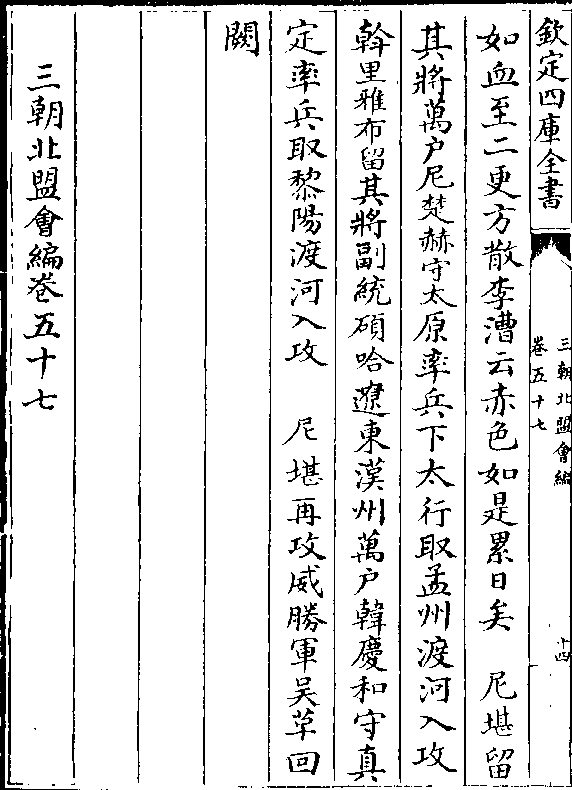 欽定四庫全書
三朝北盟會編
卷五十七
十四
如血至二更方散李漕云赤色如是累日矣　尼堪留
其將萬户尼楚赫守太原率兵下太行取孟州渡河入攻
斡里雅布留其將副統碩哈遼東漢州萬户韓慶和守真
定率兵取黎陽渡河入攻　尼堪再攻威勝軍吴革回
闕
三朝北盟會編卷五十七